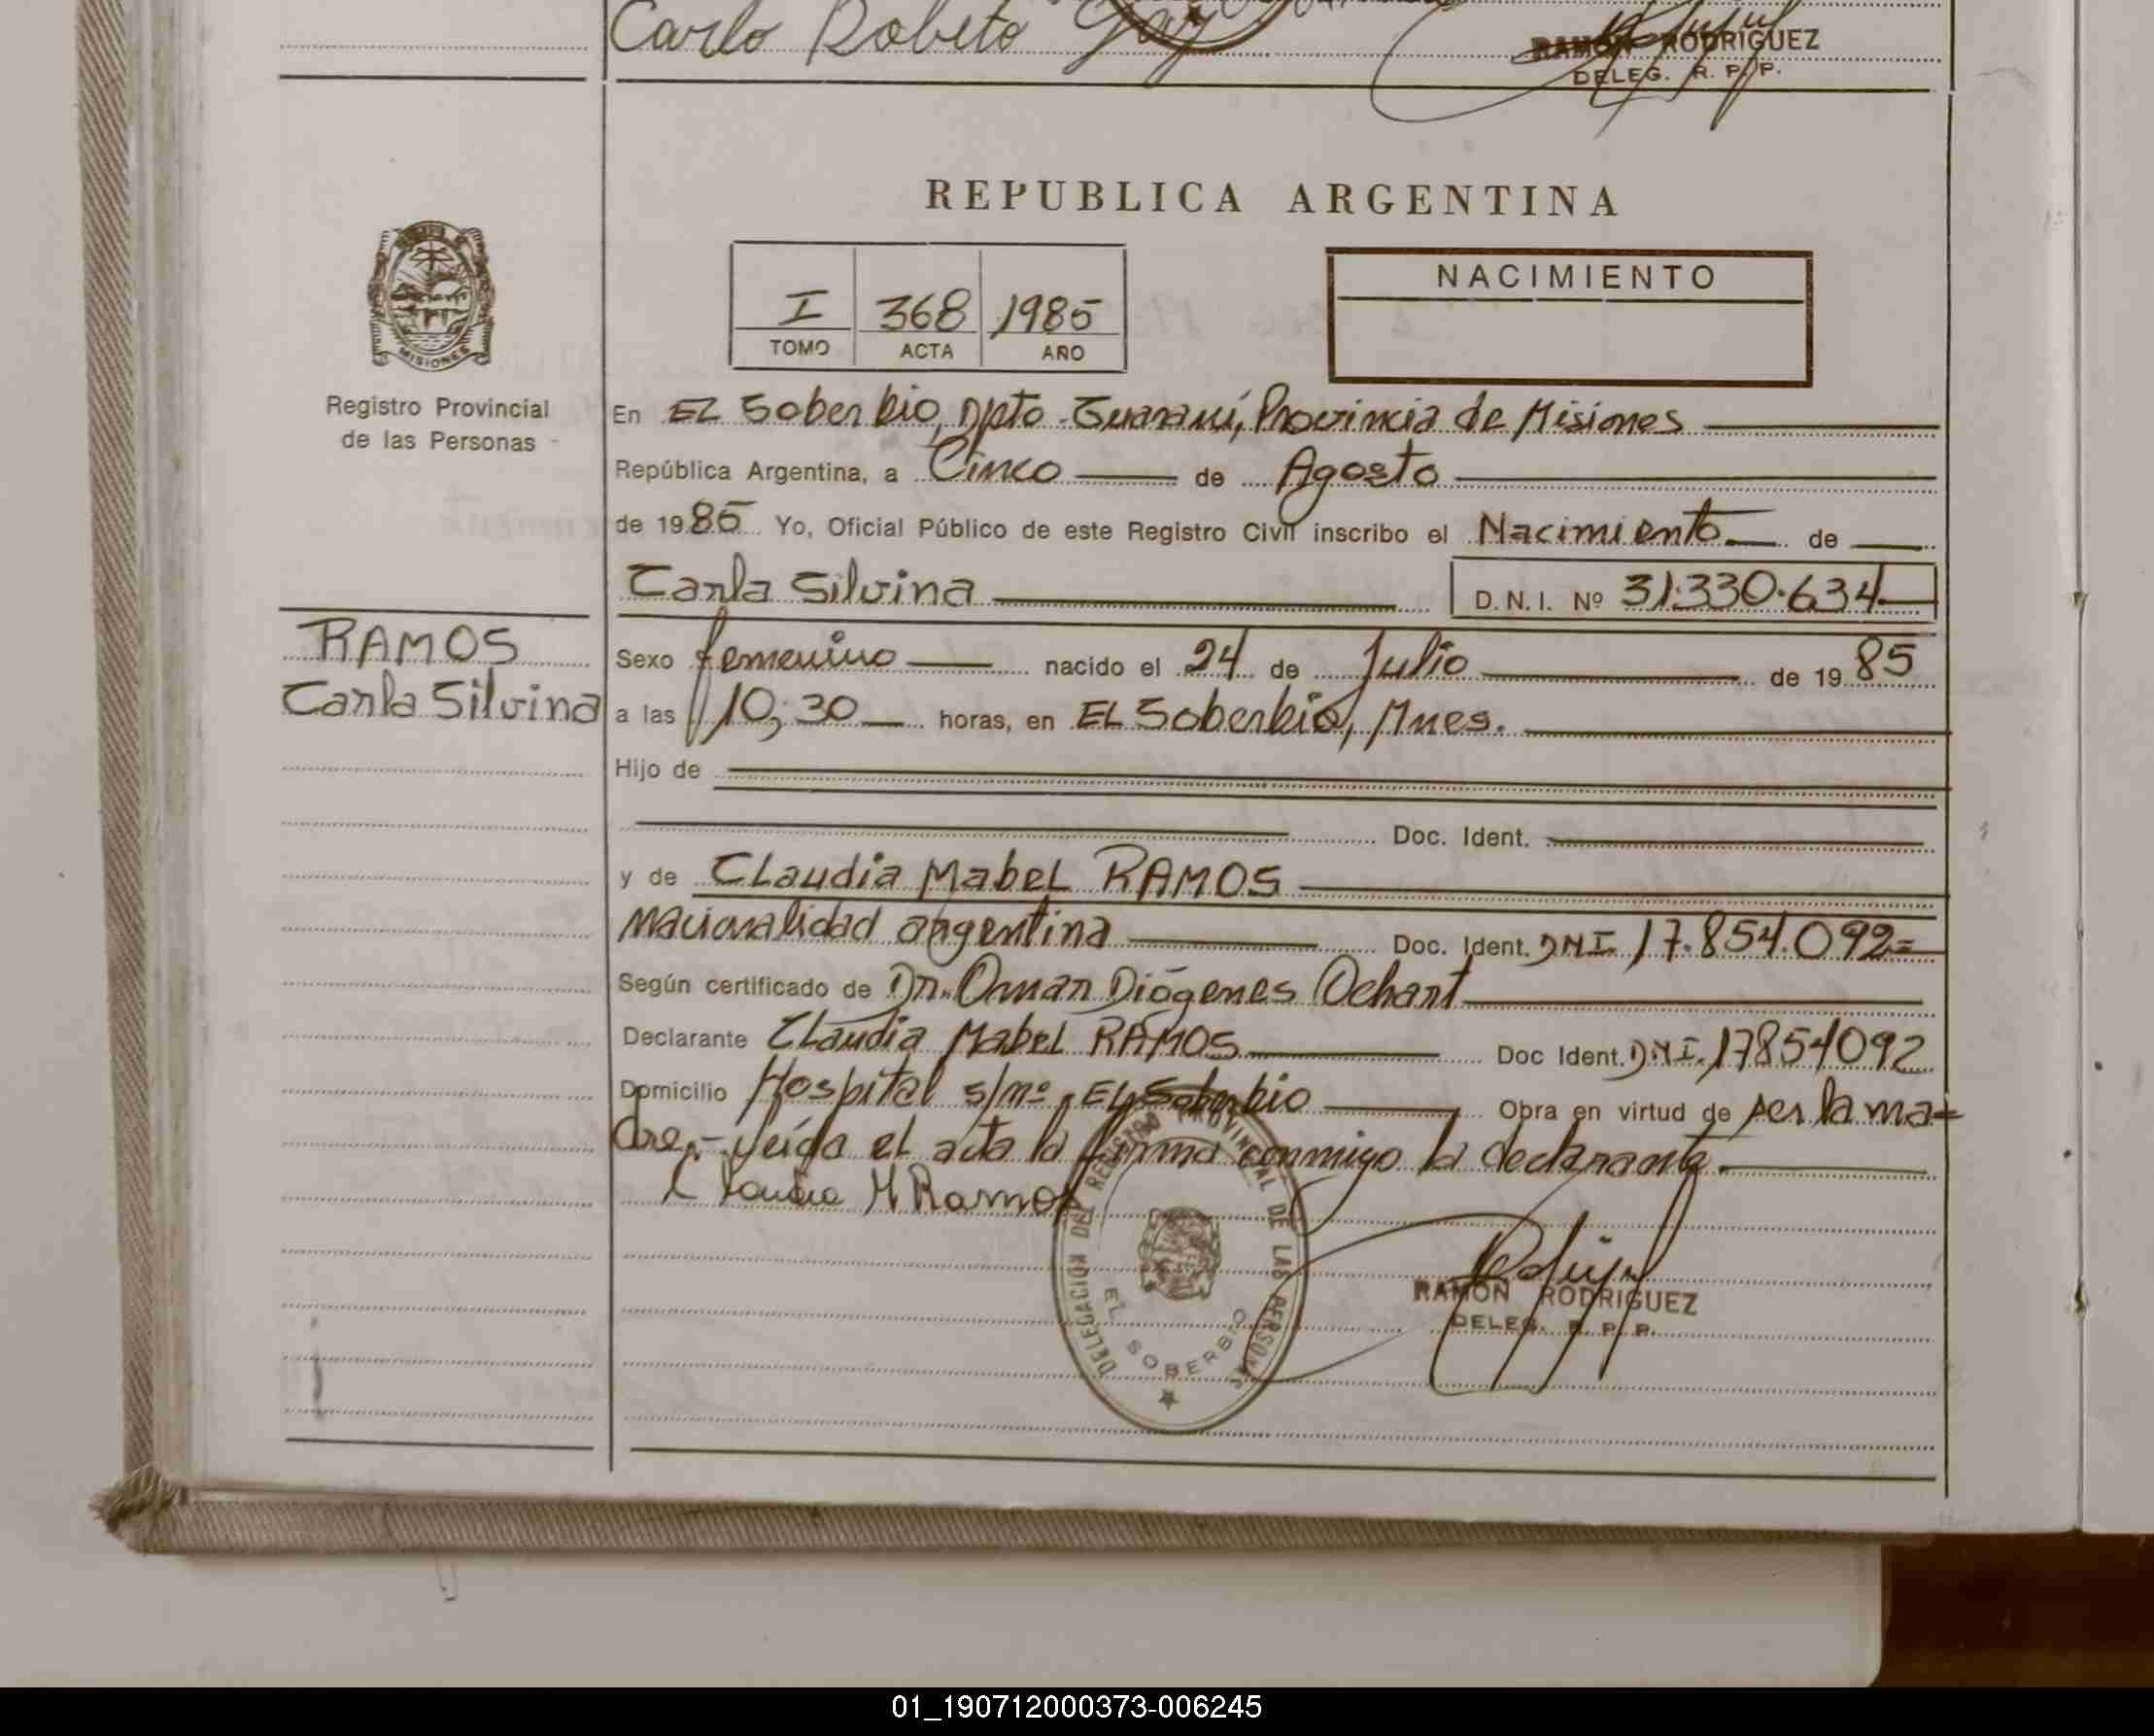 Carlo Robeto Gay
RAMON RODRIGUEZ
DELEG. R. P. P.
REPUBLICA ARGENTINA
I 368 1985
TOMO ACTA AÑO
NACIMIENTO
MISIONES
Registro Provincial
de las Personas
En EL Soberbio, Dpto. Guaraní, Provincia de Misiones
República Argentina, a Cinco de Agosto
de 1985 Yo, Oficial Público de este Registro Civil inscribo el Nacimiento de
Carla Silvina D.N.I. Nº 31.330.634
RAMOS
Carla Silvina
Sexo femenino nacido el 24 de Julio de 1985
a las 10,30 horas, en EL Soberbio, Mnes.
Hijo de
Doc. Ident.
y de CLaudia MabeL RAMOS
nacionalidad argentina Doc. Ident. DNI 17.854.092=
Según certificado de Dr. Omar Diógenes Ochart
Declarante CLaudia MabeL RAMOS Doc Ident. D.N.I. 17854092
Domicilio Hospital s/nº EL Soberbio Obra en virtud de ser la ma=
dre,- Leída el acta la firma conmigo la declarante.
Claudia M Ramos
DELEGACION DEL REGISTRO PROVINCIAL DE LAS PERSONAS
EL SOBERBIO
RAMON RODRIGUEZ
DELEG. R. P. P.
01_190712000373-006245